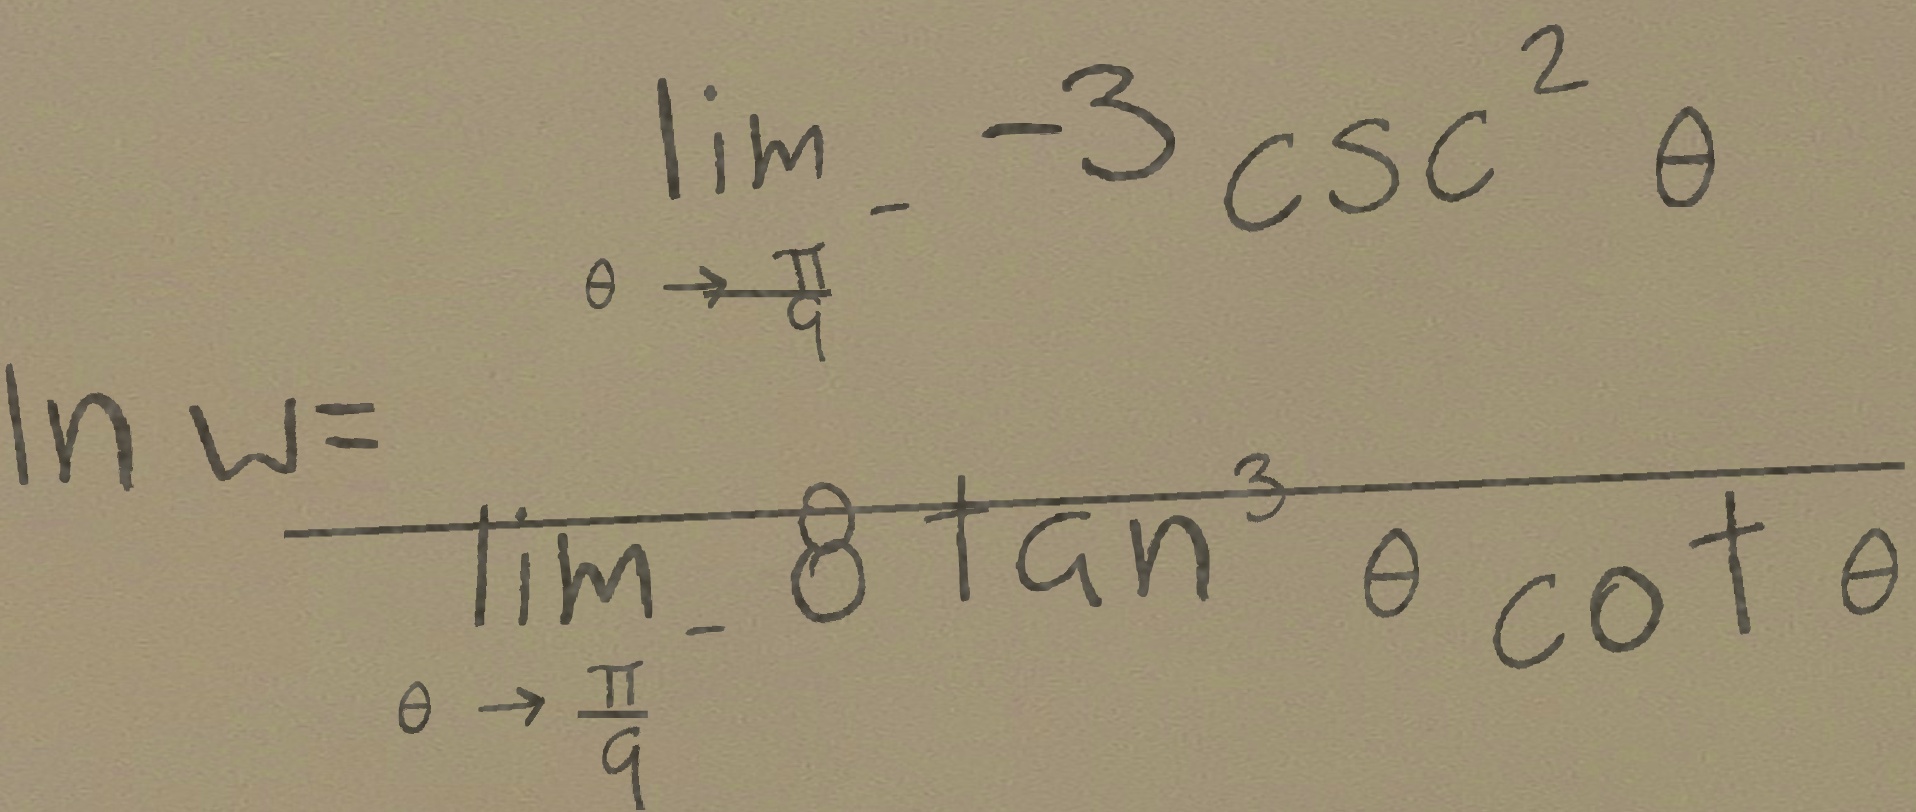 \ln w = \frac{\lim_{\theta \to \frac{\pi}{9}^-} -3 \csc^2 \theta}{\lim_{\theta \to \frac{\pi}{9}^-} 8 \tan^3 \theta \cot \theta}